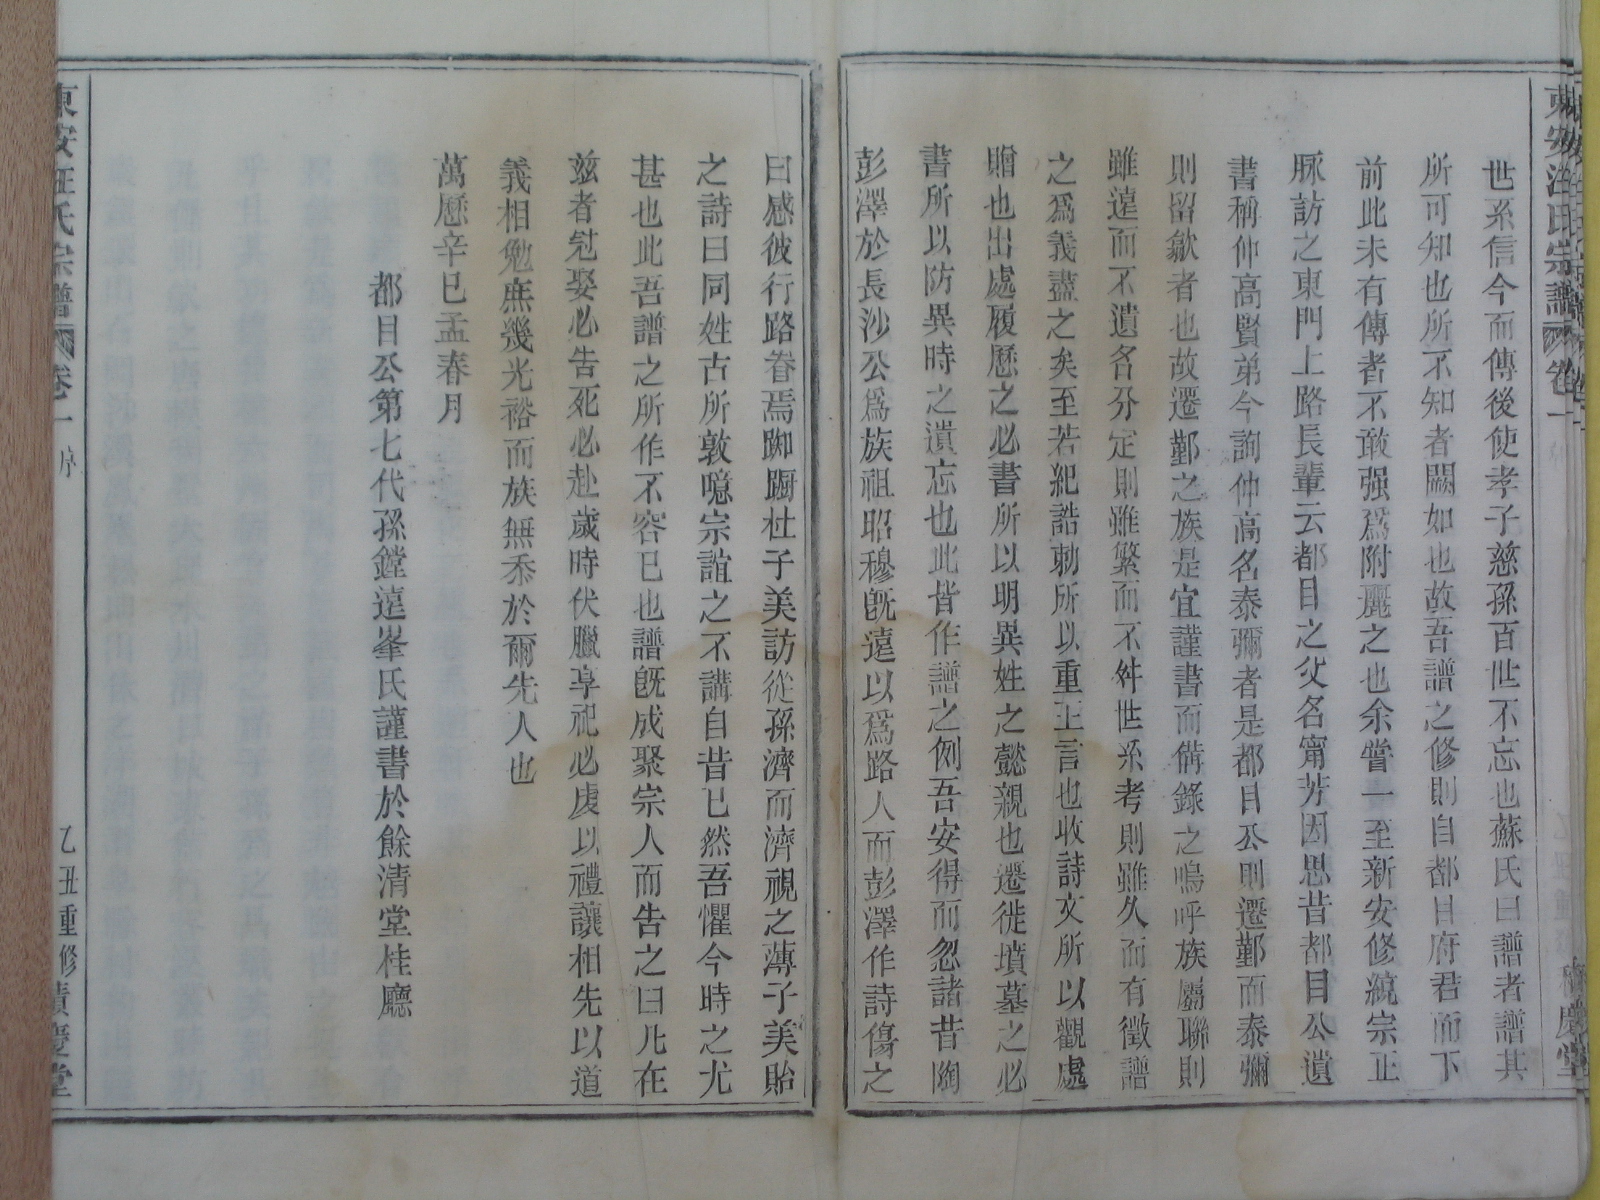 東安汪氏宗譜 卷一
世系信今而傳後使孝子慈孫百世不忘也蘇氏曰譜者譜其
所可知也所不知者闕如也故吾譜之修則自都目府君而下
前此未有傳者不敢强爲附麗之也余嘗一至新安修統宗正
脉訪之東門上路長輩云都目之父名甯芳因思昔都目公遺
書稱仲高賢弟今詢仲高名泰彌者是都目公則遷鄞而泰彌
則留歙者也故遷鄞之族是宜謹書而備錄之嗚呼族屬聯則
雖遠而不遺名分定則雖繁而不舛世系考則雖久而有徵譜
之爲義盡之矣至若紀誥勅所以重王言也收詩文所以觀處
贈也出處履歷之必書所以明異姓之懿親也遷徙墳墓之必
書所以防異時之遺忘也此皆作譜之例吾安得而忽諸昔陶
彭澤於長沙公爲族祖昭穆旣遠以爲路人而彭澤作詩傷之
曰感彼行路眷焉踟蹰杜子美訪從孫濟而濟視之薄子美貽
之詩曰同姓古所敦噫宗誼之不講自昔已然吾懼今時之尤
甚也此吾譜之所作不容已也譜旣成聚宗人而告之曰凡在
兹者冠娶必告死必赴歲時伏臘享祀必虔以禮讓相先以道
義相勉庶幾光裕而族無忝於爾先人也
萬歷辛巳孟春月
都目公第七代孫鏜遠峯氏謹書於餘清堂桂廳
東安汪氏宗譜 卷一 序 乙丑重修 積慶堂